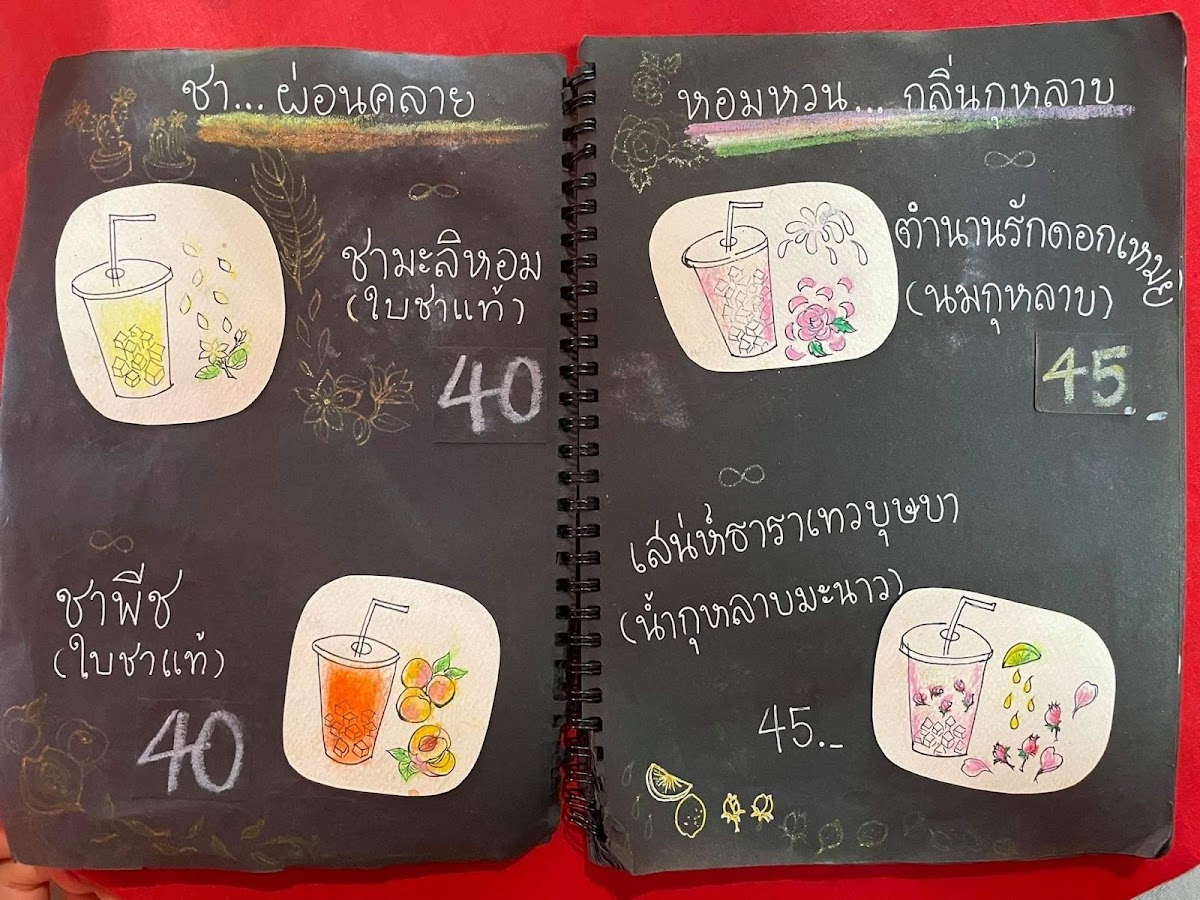 ชา... ผ่อนคลาย
ชามะลิหอม
(ใบชาแท้)
40
ชาพีช
(ใบชาแท้)
40
หอมหวน... กลิ่นกุหลาบ
ตำนานรักดอกเหมย
(นมกุหลาบ)
45.-
เสน่ห์ธาราเทวบุษบา
(น้ำกุหลาบมะนาว)
45.-